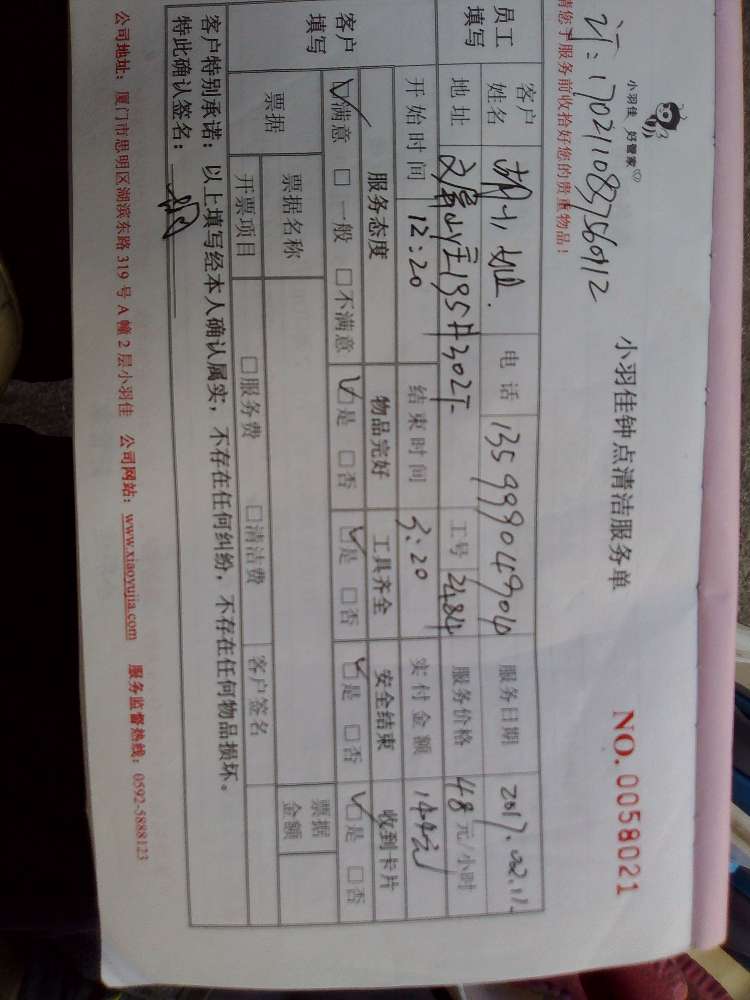 小羽佳 好管家
订:17021108756012
请您于服务前收拾好您的贵重物品!
小羽佳钟点清洁服务单
NO. 0058021
员工填写
客户姓名 胡小姐. 电话 13599904904 服务日期 2017.02.11.
地址 文屏山庄195号302于 工号 2484 服务价格 48元/小时
开始时间 12:20 结束时间 3:20 实付金额 144元
客户填写
服务态度 物品完好 工具齐全 安全结束 收到卡片
☑满意 □一般 □不满意 ☑是 □否 ☑是 □否 ☑是 □否 ☑是 □否
票据 票据名称 票据金额
开票项目 □服务费 □清洁费 客户签名
客户特别承诺:以上填写经本人确认属实,不存在任何纠纷,不存在任何物品损坏。
特此确认签名:
公司地址:厦门市思明区湖滨东路319号A幢2层小羽佳 公司网站:www.xiaoyujia.com 服务监督热线:0592-5888123